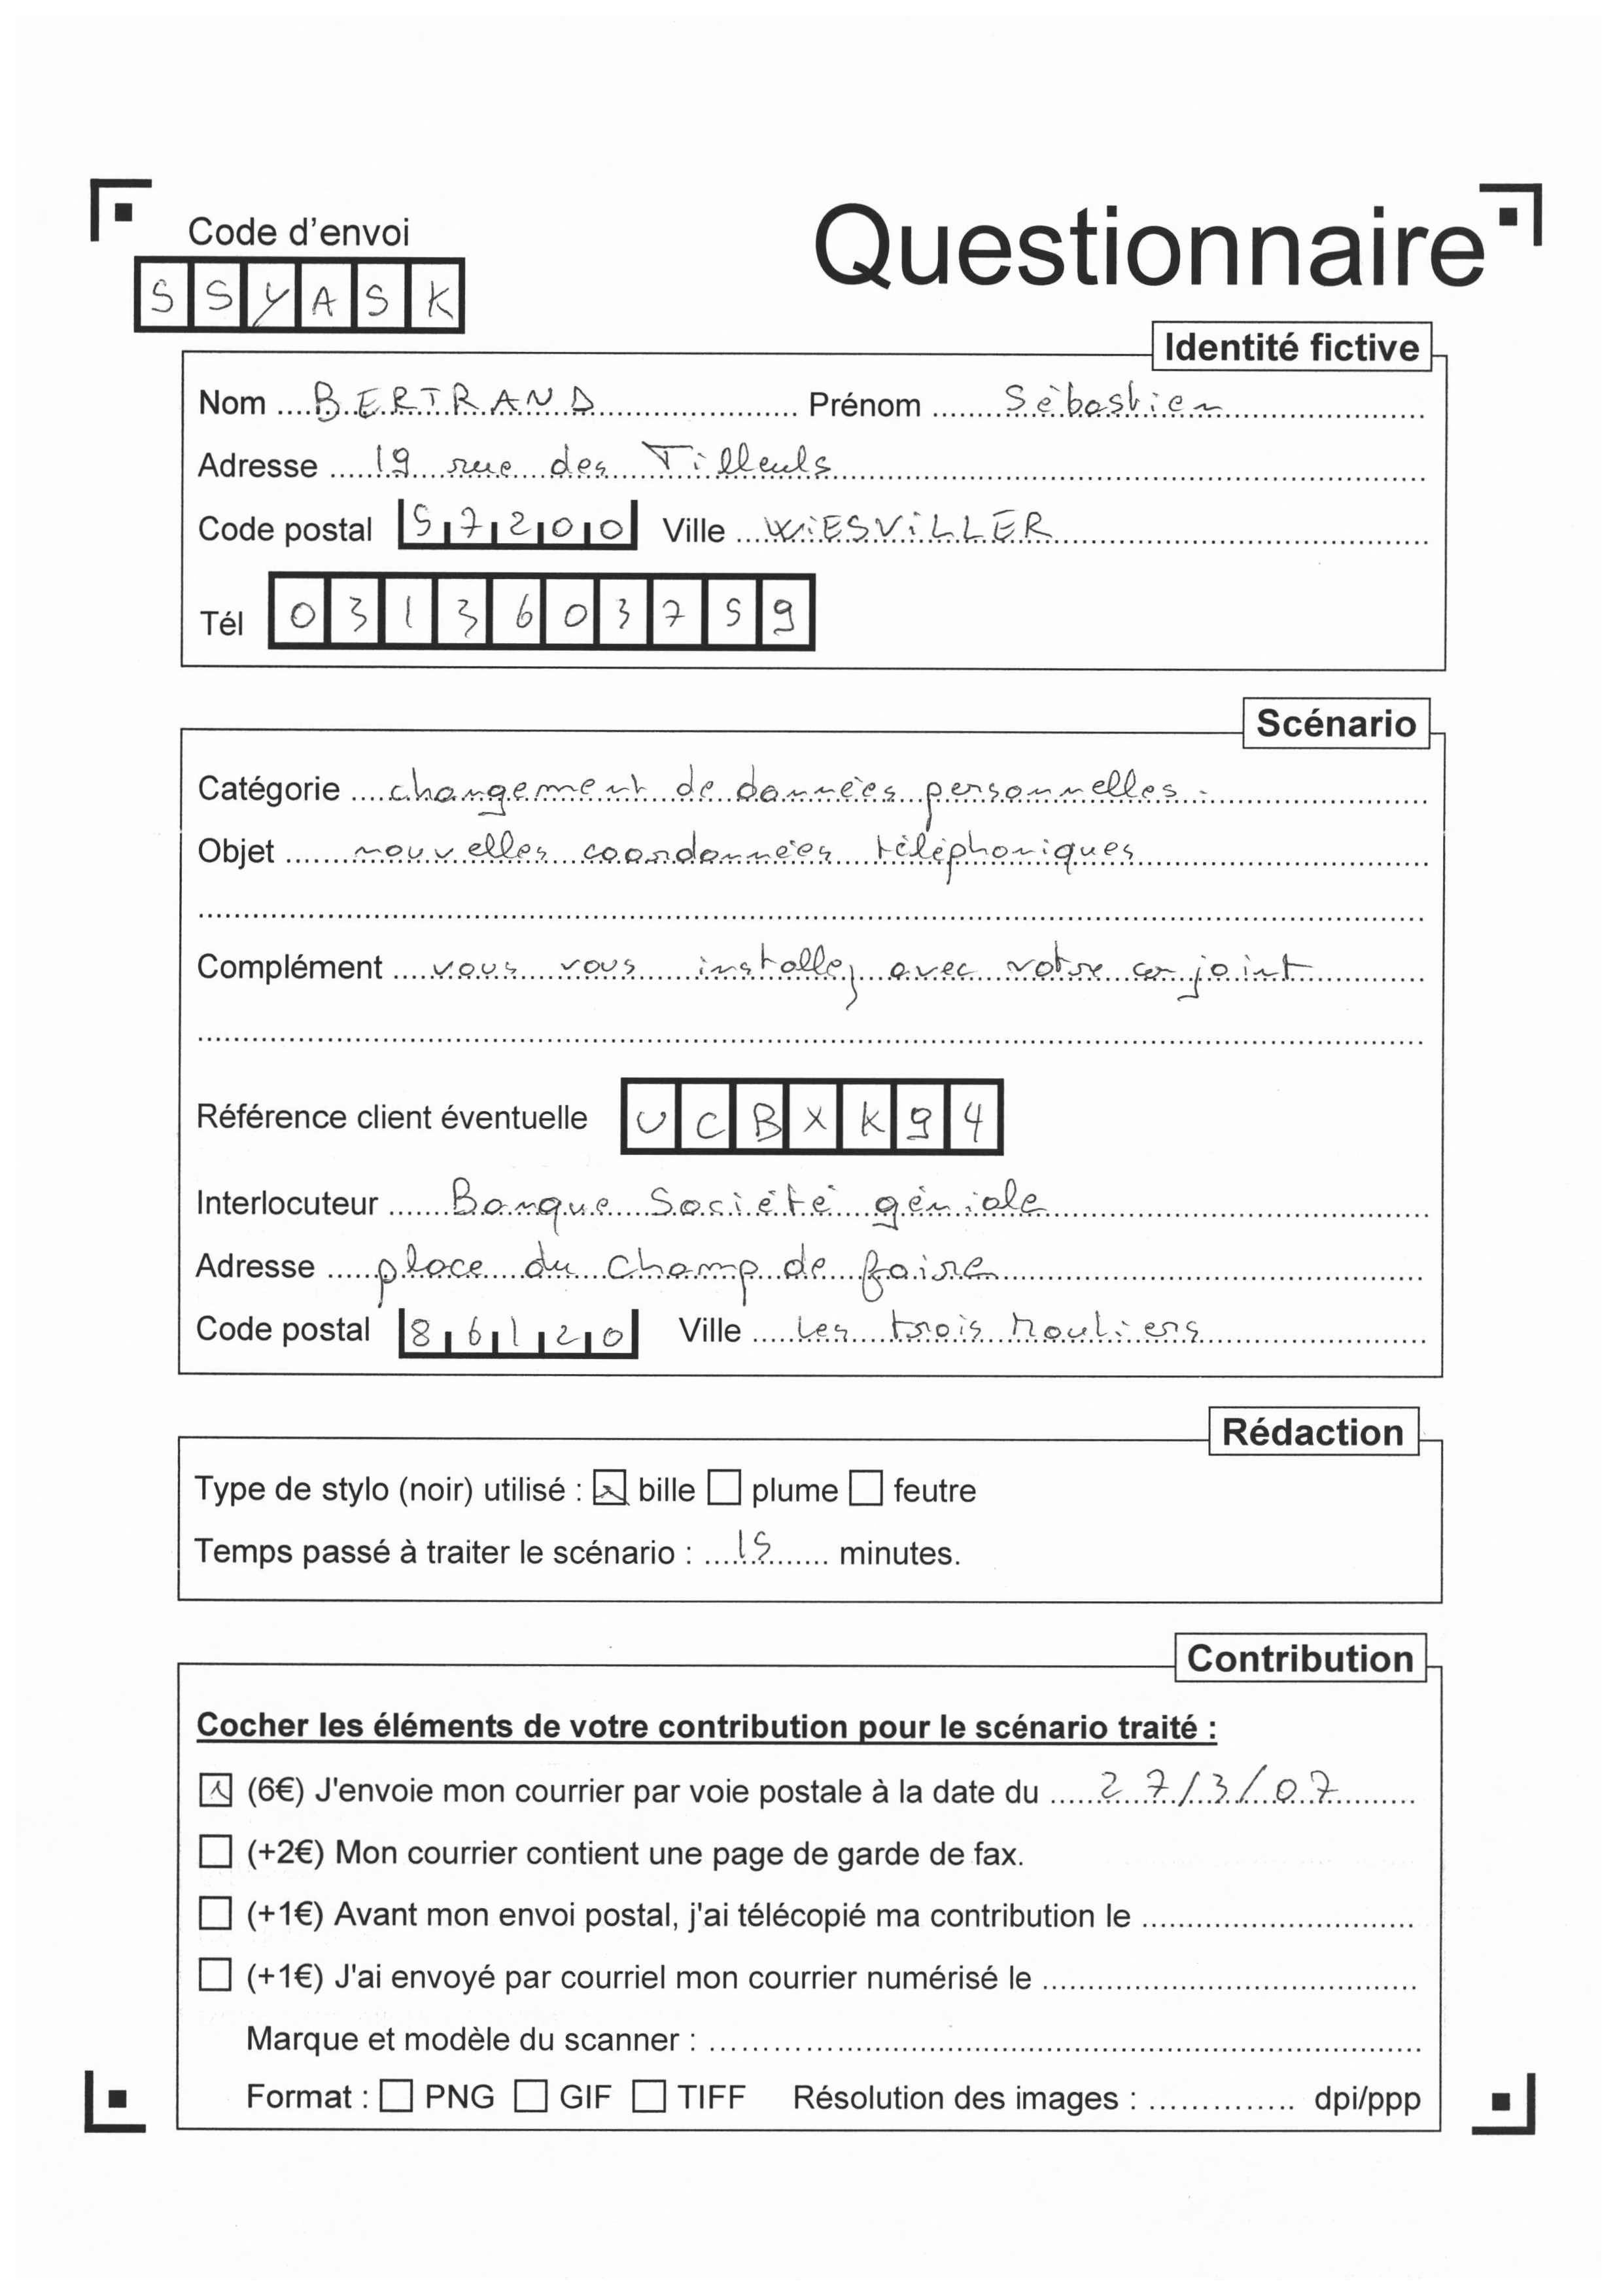 Code d'envoi
Questionnaire
SSYASK
Identité fictive
Nom BERTRAND Prénom Sébastien
Adresse 19 rue des Tilleuls
Code postal 57200 Ville WIESVILLER
Tél 0313603759
Scénario
Catégorie changement de données personnelles.
Objet nouvelles coordonnées téléphoniques
Complément vous vous installez avec votre conjoint
Référence client éventuelle UCBXK94
Interlocuteur Banque Société géniale
Adresse place du champ de foire
Code postal 86120 Ville Les trois Mouliers
Rédaction
Type de stylo (noir) utilisé : bille plume feutre
Temps passé à traiter le scénario : 15 minutes.
Contribution
Cocher les éléments de votre contribution pour le scénario traité :
(6€) J'envoie mon courrier par voie postale à la date du 27/3/07
(+2€) Mon courrier contient une page de garde de fax.
(+1€) Avant mon envoi postal, j'ai télécopié ma contribution le
(+1€) J'ai envoyé par courriel mon courrier numérisé le
Marque et modèle du scanner :
Format : PNG GIF TIFF Résolution des images : dpi/ppp